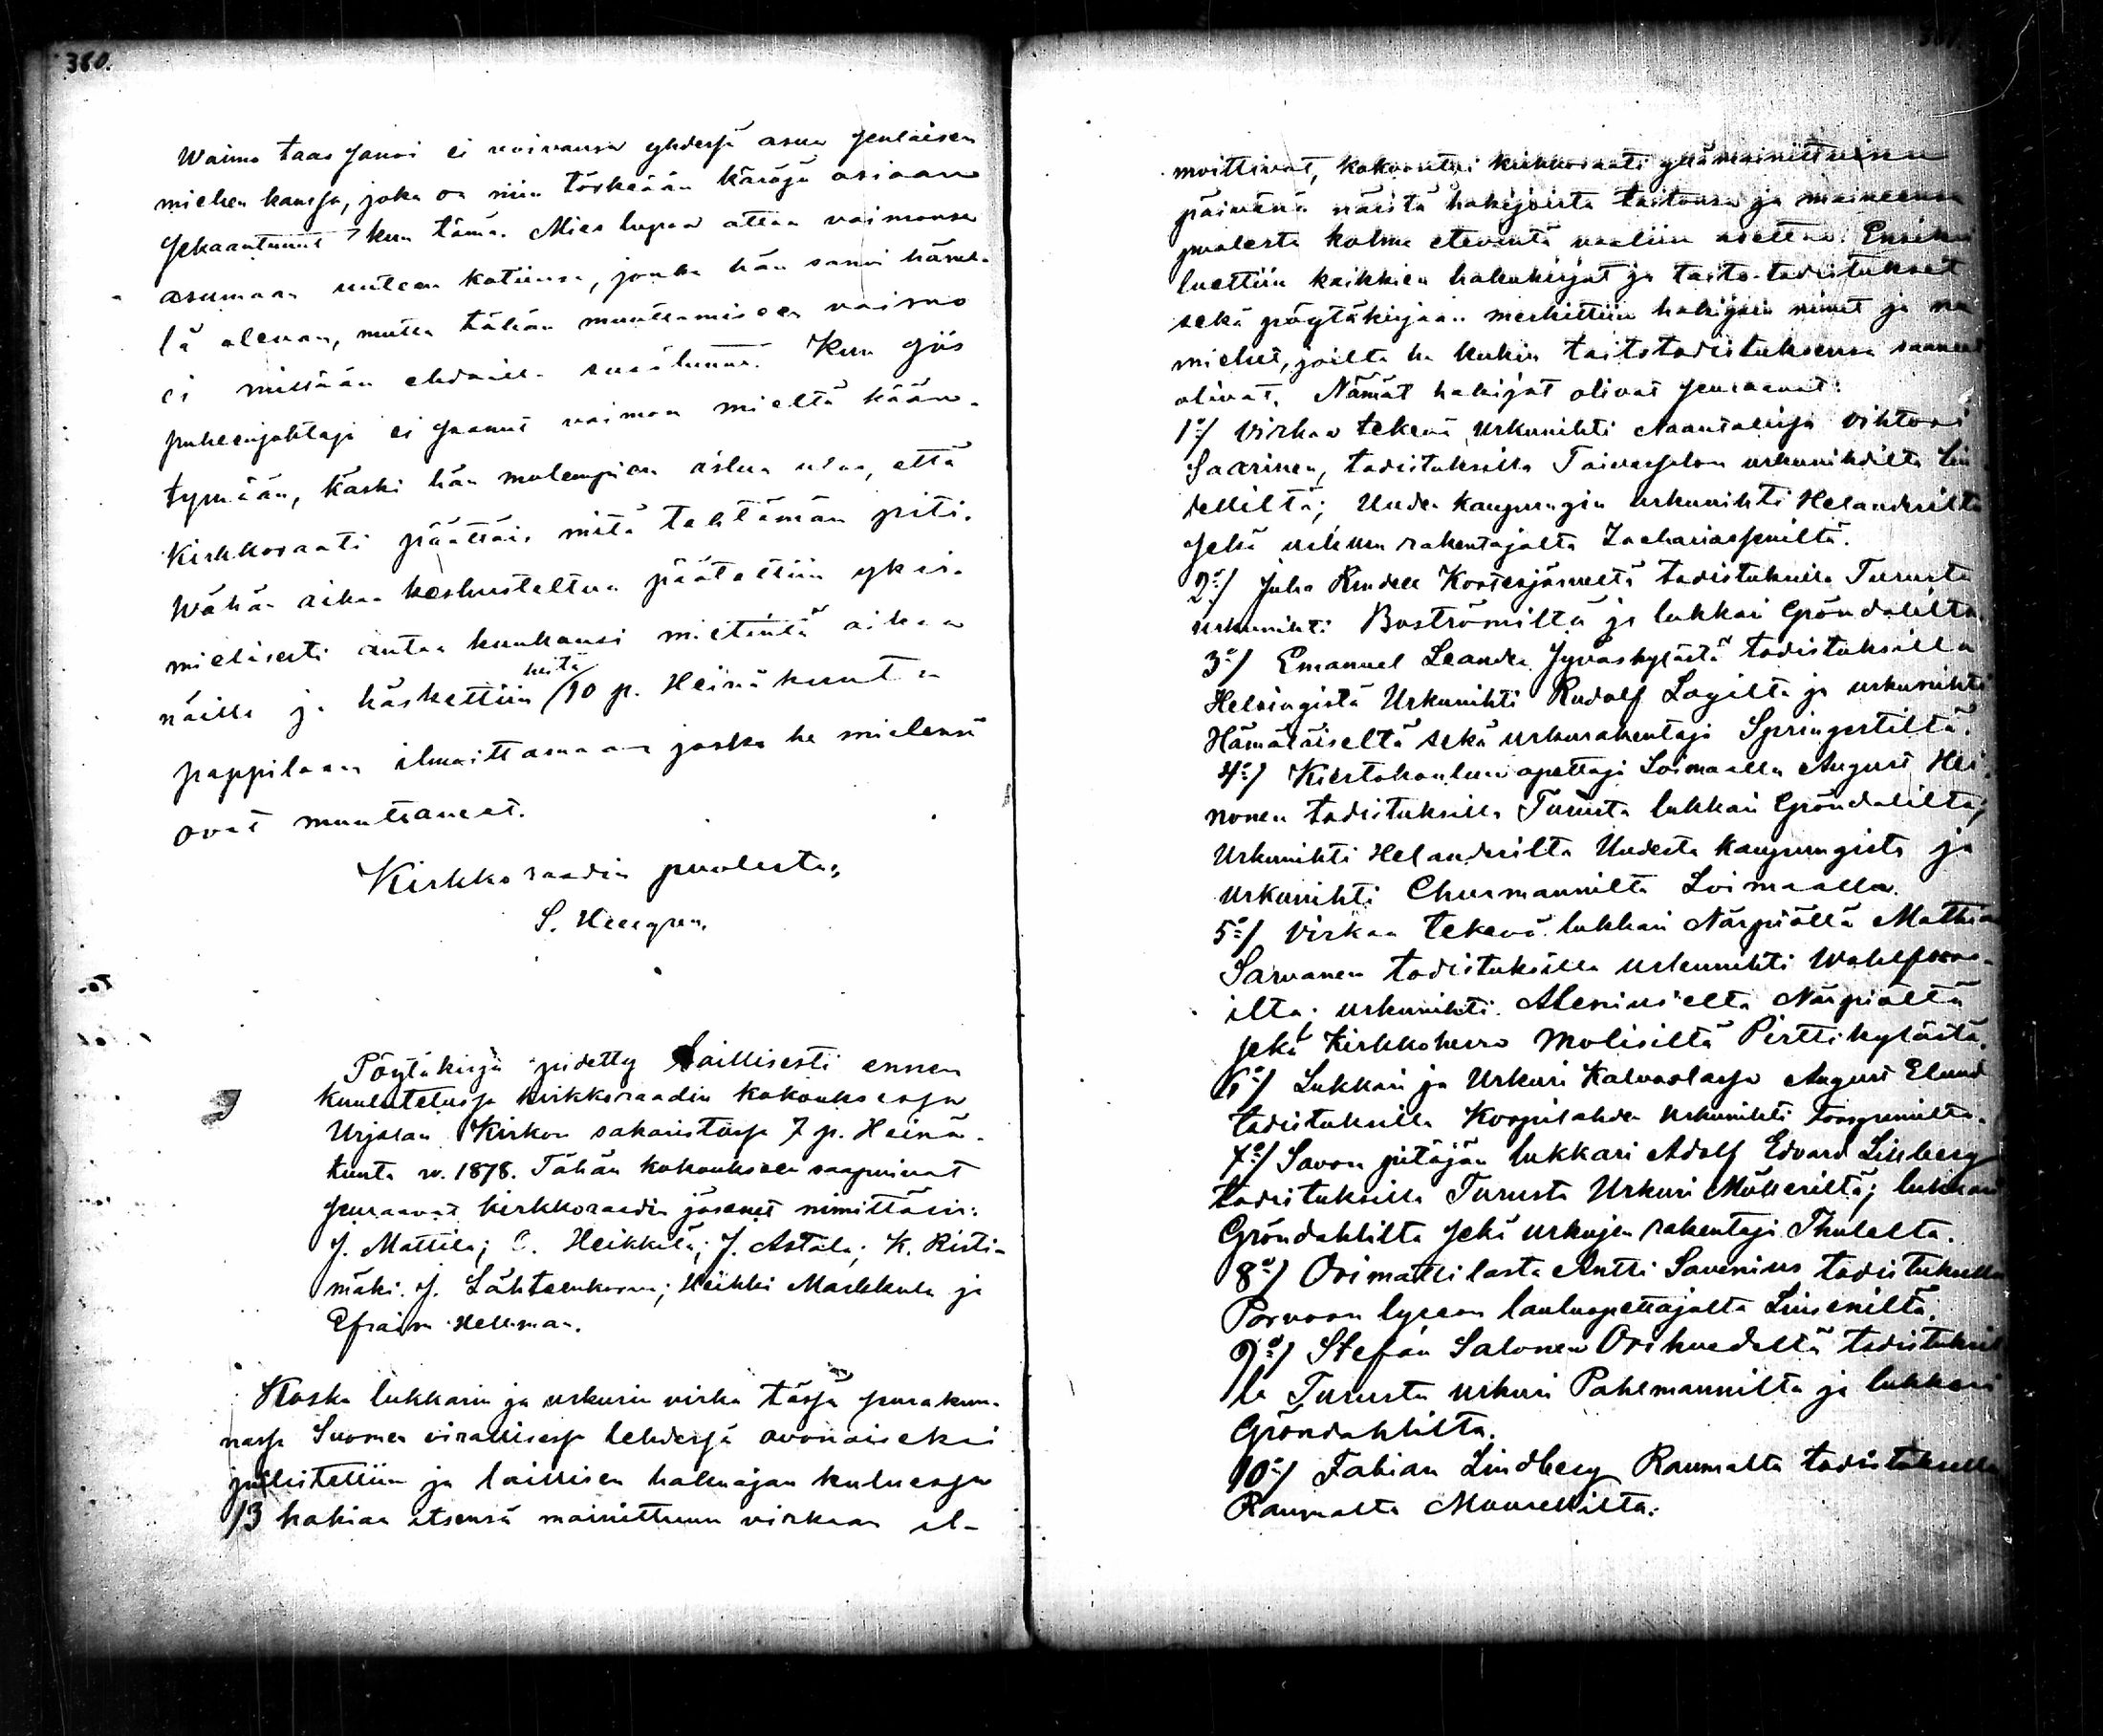 360.
Waimo taas sanoi ei voivansa yhdessä asua senlaisen
miehen kanssa, joka on niin törkeään käräjä asiaan
sekaantunut kun tämä. Mies lupaa ottaa vaimonsa
asumaan uuteen kotiinsa, jonka hän sanoi hänel-
lä olevan, mutta tähän muuttamiseen vaimo
ei millään ehdolla suostunut. Kun siis
puheenjohtaja ei saanut vaimon mieltä kään-
tymään, käski hän molempien astua ulos, että
Kirkkoraati päättäis mitä tehtämän piti.
Wähän aikaa keskusteltua päätettiin yksi-
mielisesti antaa kuukausi mietintä aikaa
näille ja käskettiin heitä 10 p. Heinäkuuta
pappilaan ilmoittamaan joska he mielensä
ovat muuttaneet.
Kirkkoraadin puolesta;
S. Heergren.
Pöytäkirja pidetty laillisesti ennen
kuulutetussa kirkkoraadin kokouksessa
Urjalan Kirkon sakaristossa 7 p. Heinä-
kuuta v. 1878. Tähän kokoukseen saapuivat
seuraavat kirkkoraadin jäsenet nimittäin:
J. Mattila; Heikkilä; J. Astala; K. Risti-
mäki. J. Lähteenkorva; Heikki Markkula ja
Efraim Hellman.
Koska lukkarin ja urkurin virka tässä seurakun-
nassa Suomen virallisessa lehdessä avonaiseksi
julistettiin ja laillisen hakuajan kuluessa
13 hakiaa itsensä mainittuun virkaan il-
moittivat, kokoontui kirkkoraati yllämainittuna
päivänä näistä hakijoista taitonsa ja maineensa
puolesta kolme etevintä vaaliin asettaa. Ensiksi
luettiin kaikkien hakukirjat ja taito-todistukset
sekä pöytäkirjaan merkittiin hakijain nimet ja ne
miehet, joilta he kukin taitotodistuksensa saaneet
olivat. Nämät hakijat olivat seuraavat:
1:o) Virkaa tekevä Urkunihti Naantalissa Vihtori
Saarinen, todistuksilla Taivassalon urkunihdilta Lin-
delliltä; Uuden kaupungin urkunihti Helanderilta
sekä urkuin rakentajalta Zachariasseniltä.
2:o) Juha Rindell Koskesjärveltä todistuksilla Turusta
urkunihti Boströmiltä ja lukkari Gröndalilta.
3:o) Emanuel Leander Jyväskylästä todistuksilla
Helsingistä Urkunihti Rudolf Lagilta ja urkunihti
Hämäläiseltä sekä urkurakentaja Springertiltä.
4:o) Kiertokoulun opettaja Loimaalla August Hei-
nonen todistuksilla Turusta lukkari Gröndalilta;
Urkunihti Helanderilta Uudesta kaupungista ja
Urkunihti Churmannilta Loimaalla.
5:o) Virkaa tekevä lukkari Närpiöllä Mathias
Sarvanen todistuksilla urkunihti Wahlfors-
ilta; urkunihti Aleniuselta Närpiöltä
sekä Kirkkoherra Molisiltä Pirttikylästä.
6:o) Lukkari ja Urkuri Kalvolassa August Elund
todistuksilla Korpilahden Urkunihti Forsgrenilta.
7:o) Savon pitäjän lukkari Adolf Edvard Lillberg
todistuksilla Turusta Urkuri Mölleriltä; lukkari
Gröndahlilta sekä urkujen rakentaja Thulelta.
8:o) Orimattilasta Antti Savenius todistuksilla
Porvoon lyseon lauluopettajalta Linseniltä.
9:o) Stefan Salonen Orihvedeltä todistuksil
la Turusta urkuri Pahlmannilta ja lukkari
Gröndahlilta.
10:o) Fabian Lindberg Raumalta todistuksilla
Raumalta Maurellilta: